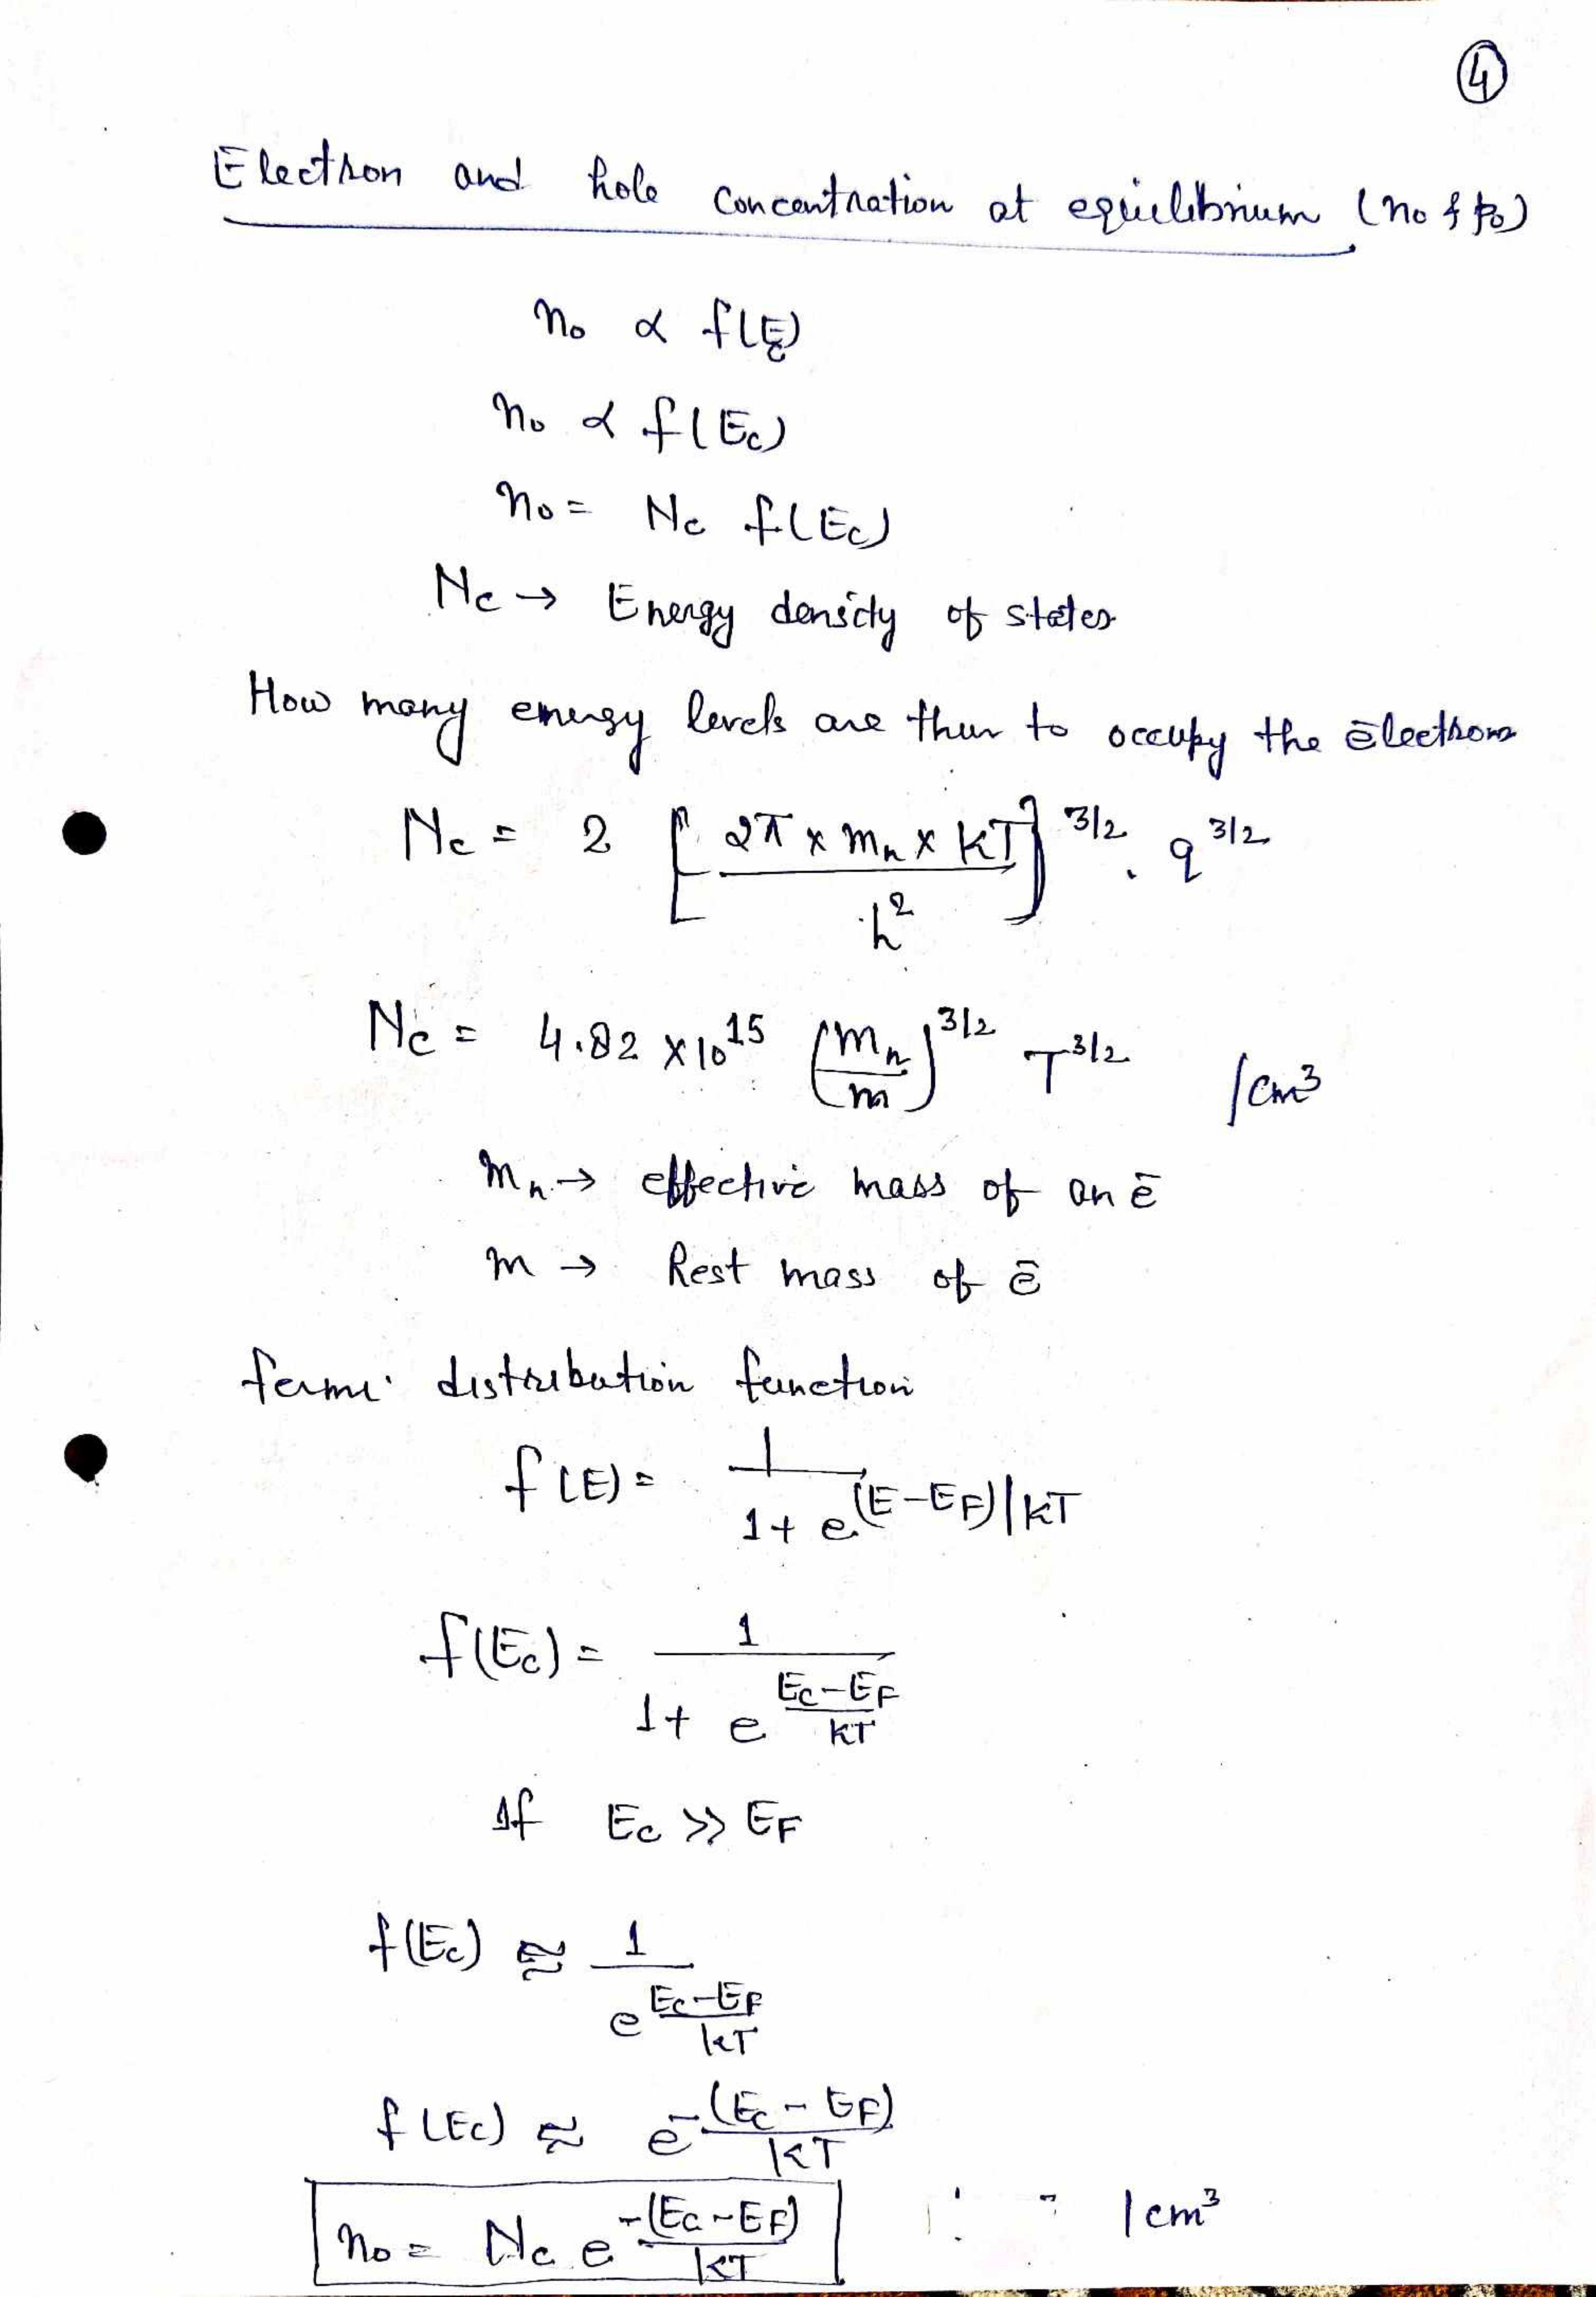 4
Electron and hole concentration at equilibrium (n₀ & p₀)
n₀ ∝ f(E)
n₀ ∝ f(Ec)
n₀ = Nc f(Ec)
Nc → Energy density of states
How many energy levels are their to occupy the ēlectrons
Nc = 2 [2π × mₙ × kT / h²]^3/2 . q^3/2
Nc = 4.82 × 10^15 (mₙ/m)^3/2 T^3/2 /cm³
mₙ → effective mass of an ē
m → Rest mass of ē
fermi distribution function
f(E) = 1 / 1 + e^(E-EF)/kT
f(Ec) = 1 / 1 + e^(Ec-EF / kT)
If Ec >> EF
f(Ec) ≅ 1 / e^(Ec-EF / kT)
f(Ec) ≅ e^-(Ec-EF)/kT
n₀ = Nc e^-(Ec-EF)/kT /cm³